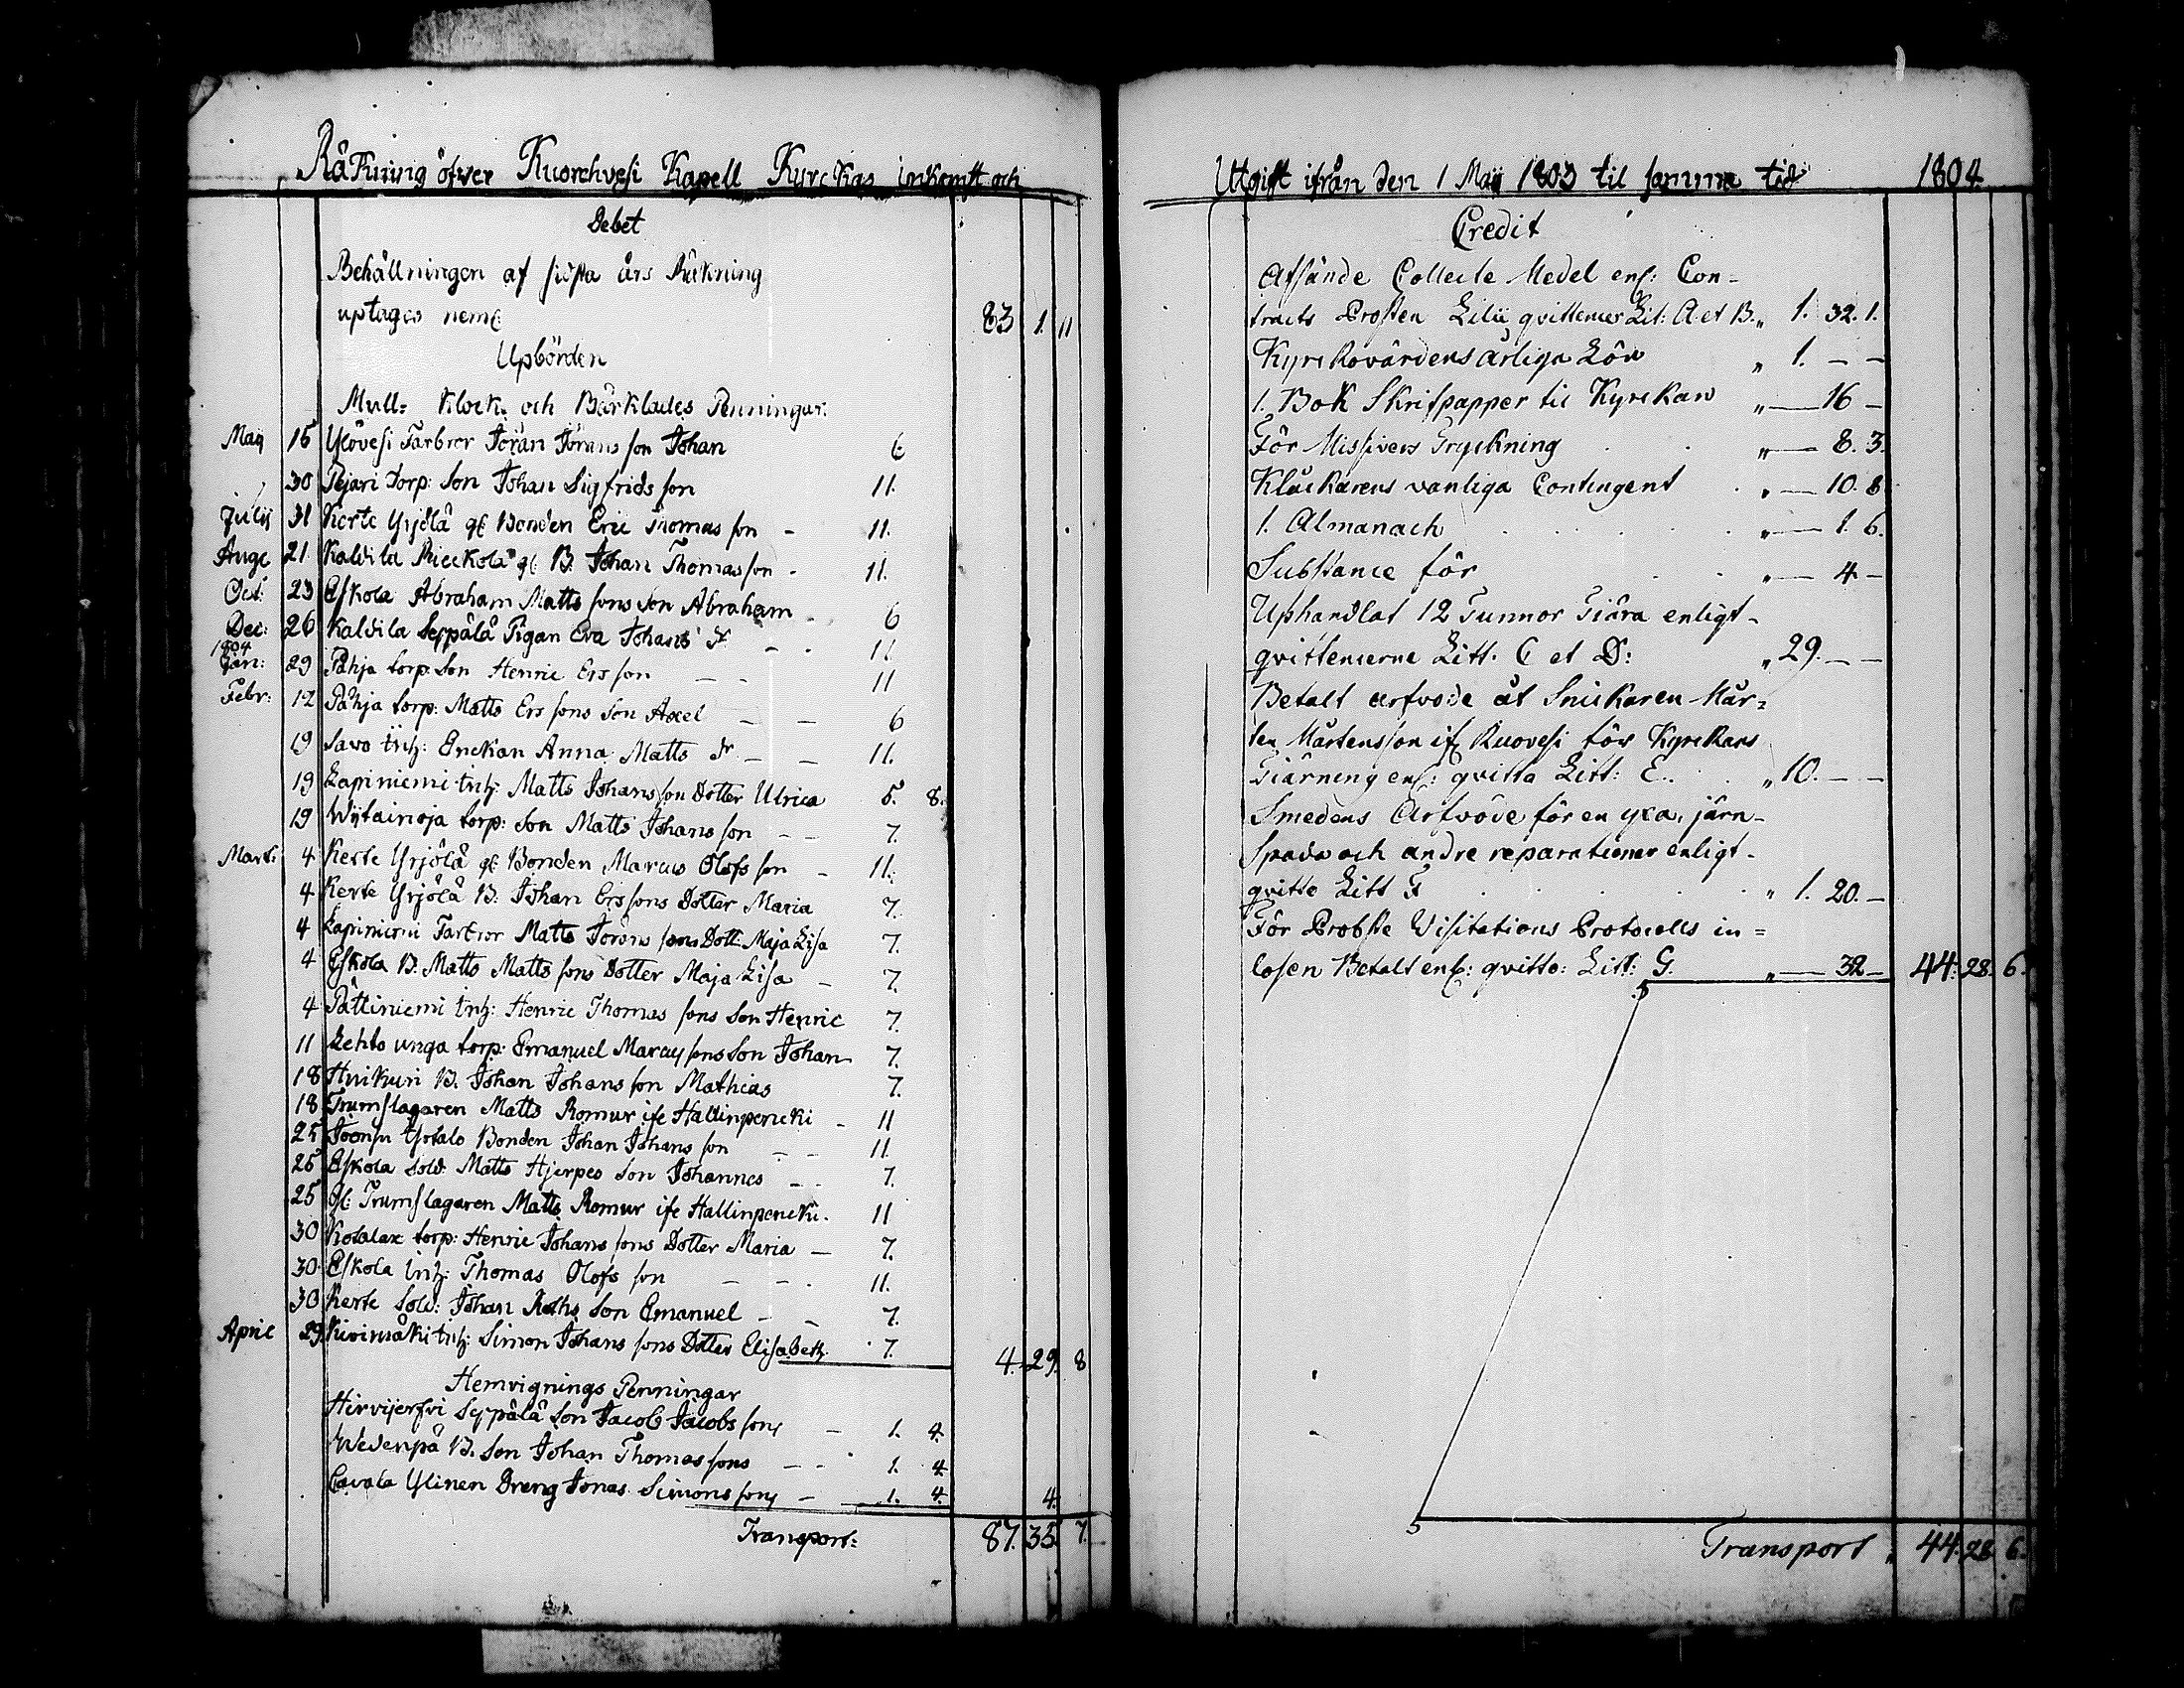 Räkning öfwer Kuorehvesi Kapell Kyrckas inkomst och
Debet
Behållningen af sidsta års Räkning
uptages neml: 83 1. 11
Upbörden
Mull= Klock= och Bårklädes Penningar.
Maij 15 Ylövesi Farbror Jöran Jöransson Johan 6
30 Pejari Torp: Son Johan Sigfridsson 11.
Julij 31 Kerte Yrjölä gl Bonden Eric Thomasson - 11.
Aug: 21 Kaldila Mieckola gl: B. Johan Thomasson - 11.
Oct: 23 Eskola Abraham Mattssons Son Abraham - 6
Dec: 26 Kaldila Seppälä Pigan Eva Johans dr - 11
1804
Jan: 29 Påhja torp: Son Henric Ersson - - 11
Febr: 12 Påhja torp: Matts Erssons Son Axel - - 6
19 Savo inh: Enckan Anna Matts dr - - 11.
19 Lapiniemi inh: Matts Johansson Dotter Ulrica 5. 8.
19 Wijtainoja torp: Son Matts Johansson - - 7.
Mart: 4 Kerte Yrjölä gl Bonden Marcus Olofsson - 11.
4 Kerte Yrjölä B. Johan Erssons Dotter Maria 7.
4 Lapiniemi Farbror Matts Jöranssons Dott: Maja Lisa 7.
4 Eskola B. Matts Mattssons Dotter Maja Lisa - 7.
4 Pättiniemi inh: Henric Thomassons Son Henric 7.
11 Lehto unga torp: Emanuel Marcussons Son Johan 7.
18 Huikuri B. Johan Johansson Mathias 7.
18 Trumslagaren Matts Romur ifr Hallinpencki - 11
25 Joensu Ylotalo Bonden Johan Johansson - - 11
25 Eskola Sold: Matts Hjerpes Son Johannes - - 7.
25 gl: Trumslagaren Matts Romur ifr Hallinpencki. 11
30 Kotalax torp: Henric Johanssons Dotter Maria - 7.
30 Eskola inh: Thomas Olofsson - - 11.
30 Kerte Sold: Johan Roths Son Emanuel - - 7.
April 29 Kivimäki inh: Simon Johanssons Dotter Elisabeth. 7. 4. 29. 8
Hemvignings Penningar
Hirvijerfvi Seppälä Son Jacob Jacobssons - 1. 4.
Wedenpä B. Son Johan Thomassons - - 1. 4
Lavala Ylinen Dreng Jonas Simonssons - 1. 4. 4.
Transport: 87. 35. 7.
Utgift ifrån den 1 Maij 1803 til samma tid 1804
Credit
Afsände Collecte Medel enl: Con-
tracts Prosten Lilii qvittencer Lit: A et B. „ 1. 32. 1.
Kyrckovärdens årliga Lön „ 1. - -
1. Bok Skrifpapper til Kyrckan „ - 16 -
För Missivers Tryckning „ - 8. 3.
Klåckarens vanliga Contingent „ - 10. 8
1. Almanach „ - 1. 6.
Substance för „ - 4 -
Uphandlat 12 Tunnor Tjära enligt
qvittencerne Litt. C et D: „ 29. - -
Betalt arfvode åt Snickaren Mår=
ten Mårtensson ifr Ruovesi för Kyrckans
Tjärning enl: qvitto Litt: E. „ 10. - -
Smedens Arfvode för en yxa, järn-
Spada och andre reparationer enligt
qvitto Litt F „ 1. 20. -
För Probste Visitations Protocolls in=
losen Betalt enl: qvitto: Litt: G. „ - 32 - 44. 28. 6.
Transport „ 44. 28. 6.